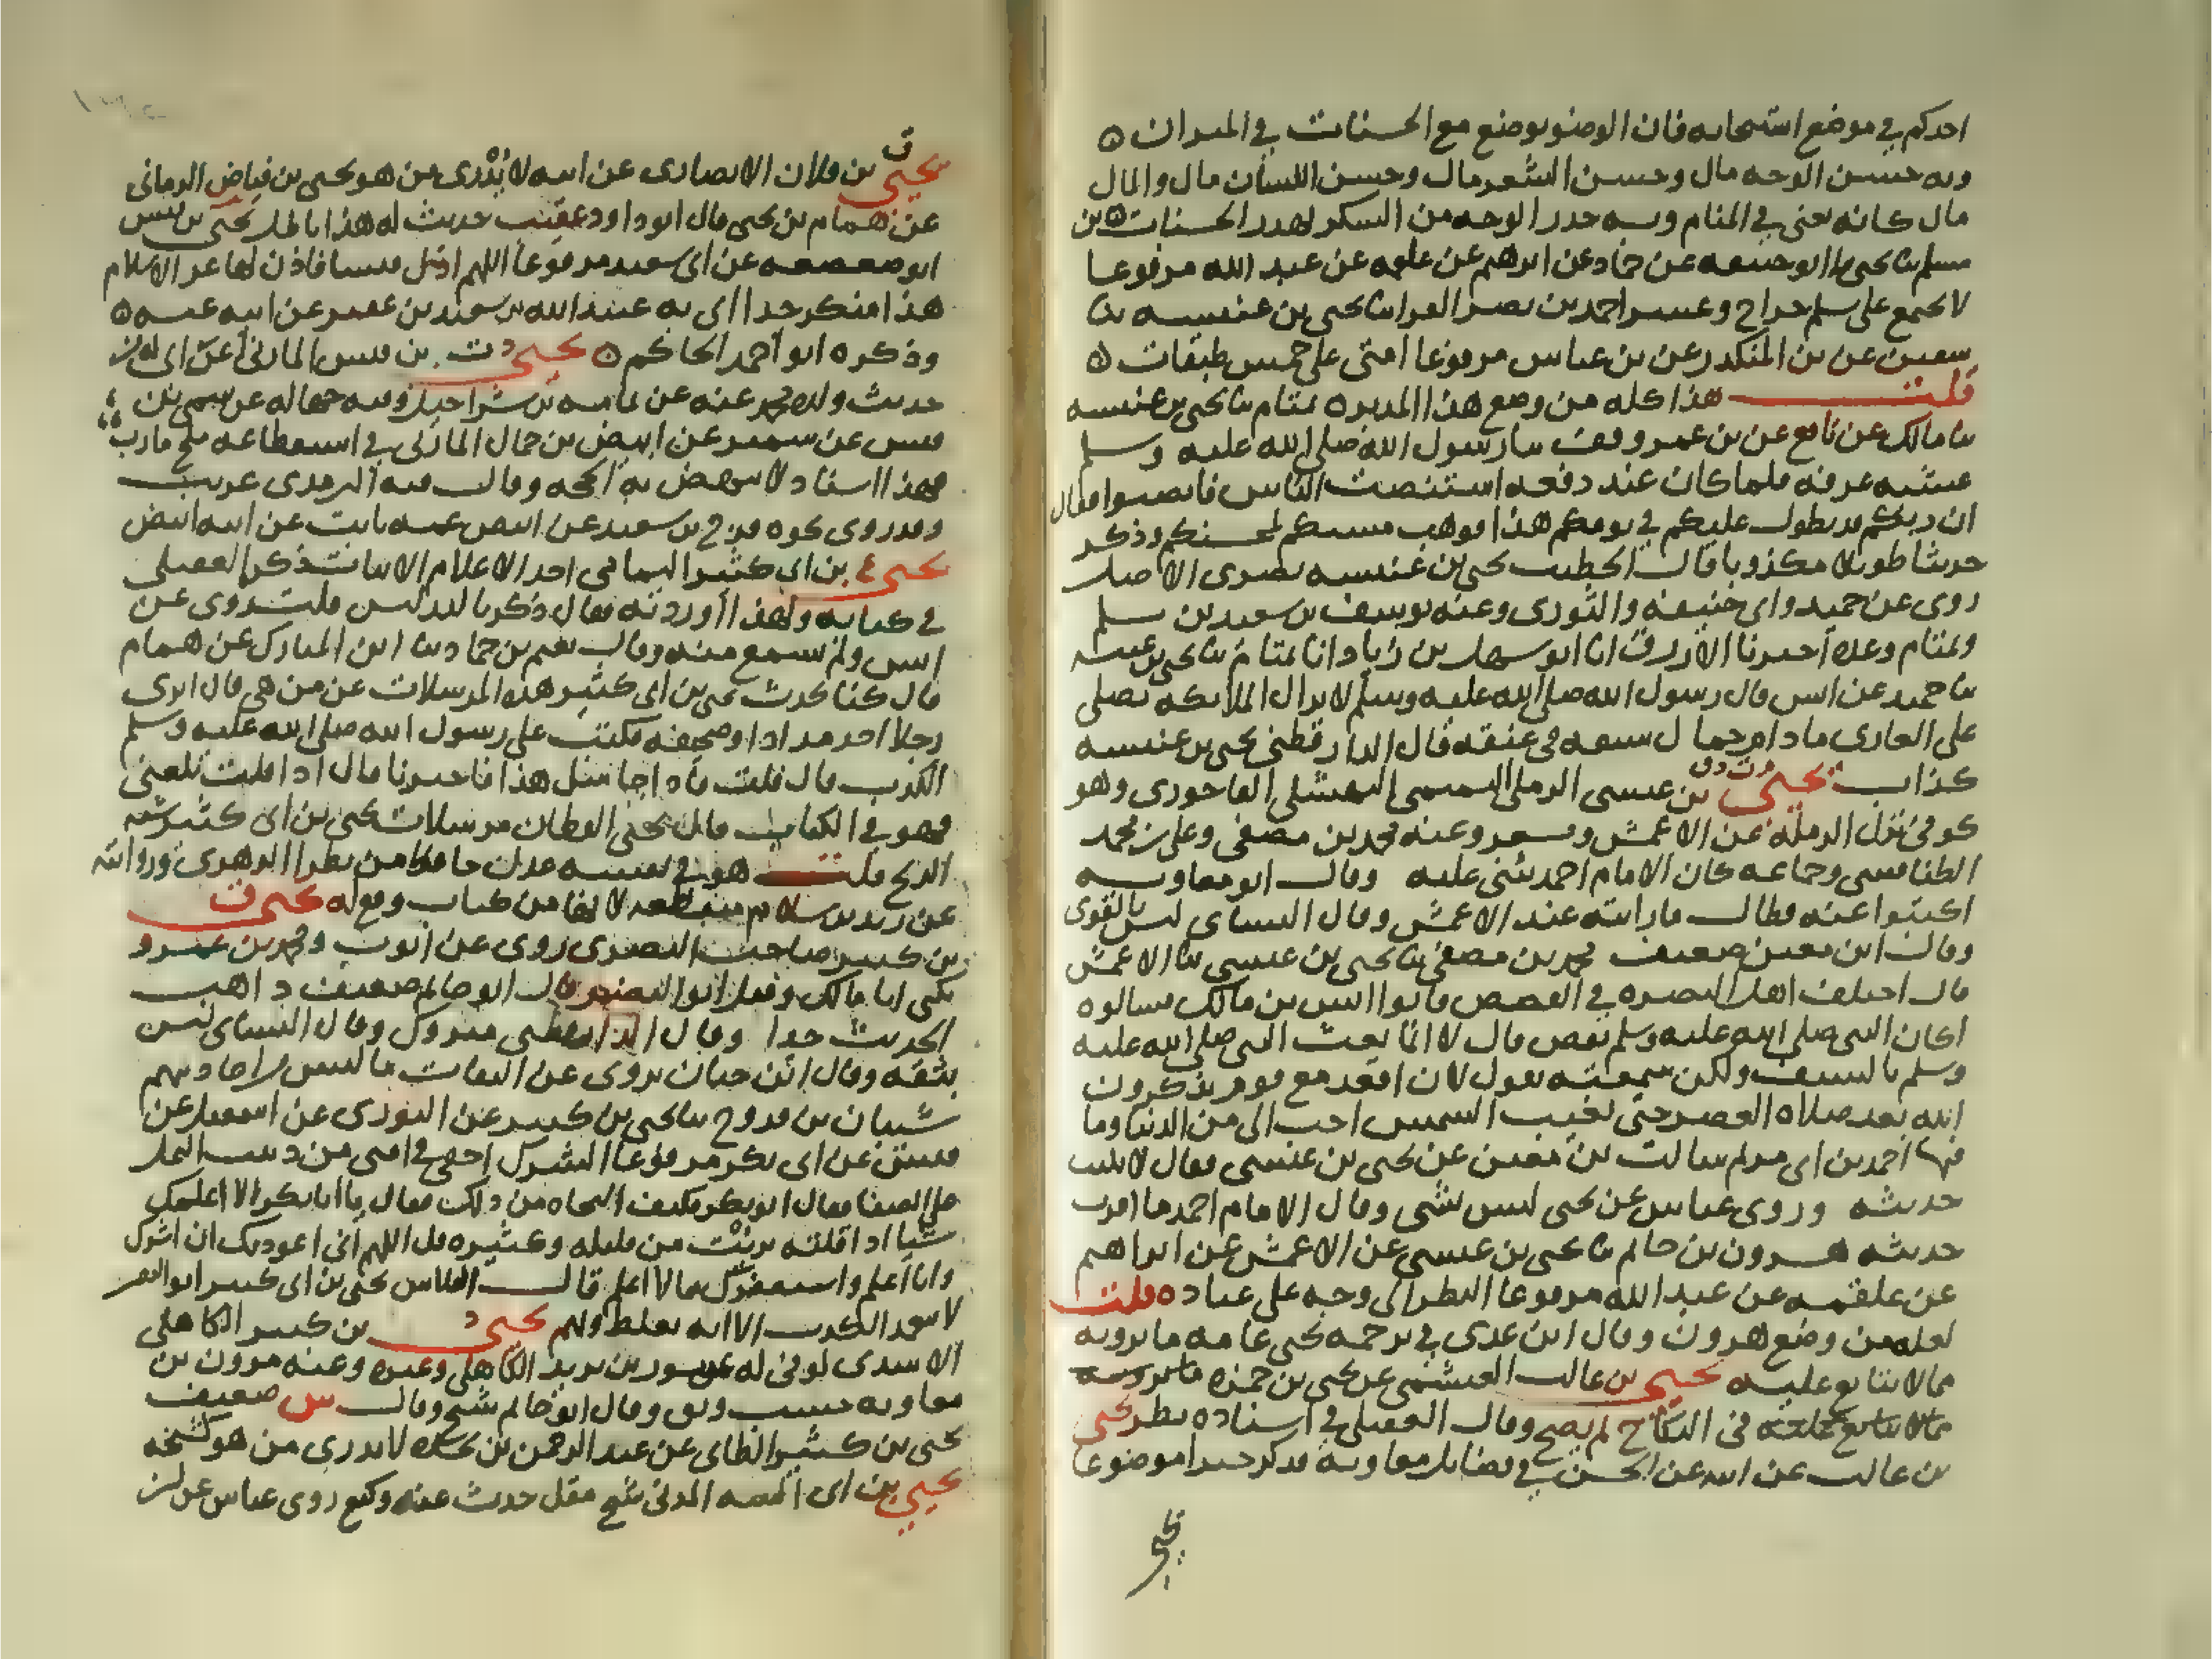 احدكم في موضع استنجائه فان الوضوء يوضع مع الحسنات في الميزان
وبه حسن الوجه مال وحسن الشعر مال وحسن اللسان مال والمال
مال كانه يعني في المنام وبه حدر الوجه من السكر يهدر الحسنات بن
مسلم ثنا يحيى ثنا ابو حنيفه عن حماد عن ابرهيم عن علقمه عن عبد الله مرفوعا
لا يجمع على مسلم خراج وعشر احمد بن نصر الفرا ثنا يحيى بن عنبسه ثنا
سفين عن بن المنكدر عن بن عباس مرفوعا امتي على خمس طبقات
قلت هذا كله من وضع هذا المدبر تمتام ثنا يحيى بن عنبسه
ثنا مالك عن نافع عن بن عمر وقف بنا رسول الله صلى الله عليه وسلم
عشيه عرفه فلما كان عند دفعه استنصت الناس فانصتوا فقال
ان ربكم قد تطول عليكم في يومكم هذا فوهب مسيئكم لمحسنكم وذكر
حديثا طويلا مكذوبا قال الخطيب يحيى بن عنبسه بصري الاصل
روى عن حميد وابي حنيفه والثوري وعنه يوسف بن سعيد بن مسلم
وتمتام وعده اخبرنا الازرق انا ابو سهل بن زياد انا تمتام ثنا يحيى بن عنبسه
ثنا حميد عن انس قال رسول الله صلى الله عليه وسلم لا يزال الملائكه تصلي
على الغازي ما دام حمايل سيفه في عنقه قال الدارقطني يحيى بن عنبسه
كذاب يحيى م د ت ق بن عيسى الرملي التميمي النهشلي الفاخوري وهو
كوفي نزل الرمله عن الاعمش ومسعر وعنه محمد بن مصفى وعلي بن محمد
الطنافسي وجماعه كان الامام احمد يثني عليه وقال ابو معاويه
اكتبوا عنه فطال ما رايته عند الاعمش وقال النسائي ليس بالقوي
وقال ابن معين ضعيف محمد بن مصفى ثنا يحيى بن عيسى ثنا الاعمش
قال اختلف اهل البصره في القصص فاتوا انس بن مالك فسالوه
اكان النبي صلى الله عليه وسلم يقص قال لا انما بعث النبي صلى الله عليه
وسلم بالسيف ولكن سمعته يقول لان اقعد مع قوم يذكرون
الله بعد صلاه العصر حتى تغيب الشمس احب الي من الدنيا وما
فيها احمد بن ابي مريم سالت بن معين عن يحيى بن عيسى فقال لا يكتب
حديثه وروى عباس عن يحيى ليس بشي وقال الامام احمد ما اقرب
حديثه هرون بن حاتم ثنا يحيى بن عيسى عن الاعمش عن ابراهيم
عن علقمه عن عبد الله مرفوعا النظر الى وجه علي عباده قلت
لعله من وضع هرون وقال ابن عدي في ترجمه يحيى عامه ما يرويه
مما لا يتابع عليه يحيى بن غالب العبشمي عن يحيى بن حمزه
مما لا يتابع في النكاح لم يصح وقال العقيلي في اسناده نظر يحيى
بن غالب عن ابيه عن الحسن في فضايل معاويه فذكر خبرا موضوعا
يحيى
يحيى ق بن فلان الانصاري عن ابيه لا يدرى من هو يحيى بن فياض الزماني
عن همام بن يحيى قال ابو داود عقيب حديث له هذا باطل يحيى بن قيس
ابو صعصعه عن ابي سعيد مرفوعا اللهم اذل قيسا فان ذلها عز الاسلام
هذا منكر جدا اتى به عبد الله بن سعيد بن عفير عن ابيه عنه
وذكره ابو احمد الحاكم يحيى د ت بن قيس الماربي عن ابيض
حديث وله عنه عن ثمامه بن شراحيل وفيه جهاله عن سمي بن
قيس عن سمير عن ابيض بن حمال الماربي في استقطاعه ملح مارب
فهذا اسناد لا ينهض به الحجه وقال فيه الترمذي غريب
وقد روى نحوه فرج بن سعيد عن عمه ثابت عن ابيه ابيض
يحيى ع بن ابي كثير اليمامي احد الاعلام الاثبات ذكره العقيلي
في كتابه ولهذا اوردته فقال ذكر بالتدليس قلت روى عن
انس ولم يسمع منه وقال نعيم بن حماد ثنا ابن المبارك عن همام
قال كنا نحدث يحيى بن ابي كثير هذه المرسلات عن من هي قال اترى
رجلا اخذ مدادا وصحيفه فكتب على رسول الله صلى الله عليه وسلم
الكذب قال قلت فاذا جا مثل هذا فاخبرنا قال اذا قلت بلغني
فهو في الكتاب قال يحيى القطان مرسلات يحيى بن ابي كثير شبه
الريح قلت هو في نفسه عدل حافظ من نظرا الزهري وروايته
عن زيد بن سلام منقطعه لانها من كتاب وقع له يحيى ق
بن كثير صاحب البصري روى عن ايوب ومحمد بن عمرو
يكنى ابا مالك وقيل ابو النضر قال ابو حاتم ضعيف ذاهب
الحديث جدا وقال الدارقطني متروك وقال النسائي ليس
بثقه وقال ابن حبان يروي عن الثقات ما ليس من احاديثهم
شيبان بن فروخ ثنا يحيى بن كثير عن الثوري عن اسمعيل عن
قيس عن ابي بكر مرفوعا الشرك اخفى في امتي من دبيب النمل
على الصفا فقال ابو بكر فكيف النجاه من ذلك فقال يا ابا بكر الا اعلمك
شيا اذا قلته بريت من قليله وكثيره قل اللهم اني اعوذ بك ان اشرك
وانا اعلم واستغفرك مما لا اعلم قال الفلاس يحيى بن كثير ابو النضر
لا يتعمد الكذب الا انه يغلط ويهم يحيى د بن كثير الكاهلي
الاسدي كوفي له عن مسور بن يزيد الكاهلي وغيره وعنه مرون بن
معاويه حسب وثق وقال ابو حاتم شيخ وقال س ضعيف
يحيى بن كثير الطائي عن عبد الرحمن بن نجده لا يدرى من هو كشيخه
يحيى بن ابي المدني شيخ مقل حدث عنه وكيع روى عباس عن